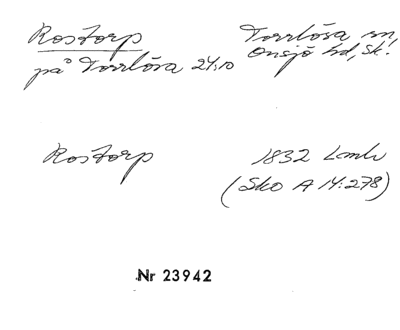 Rostorp Torrlösa sn,
på Torrlösa 24:10 Onsjö hd, Sk.
Rostorp 1832 Lmh
(Sko A 14:278)
Nr 23942